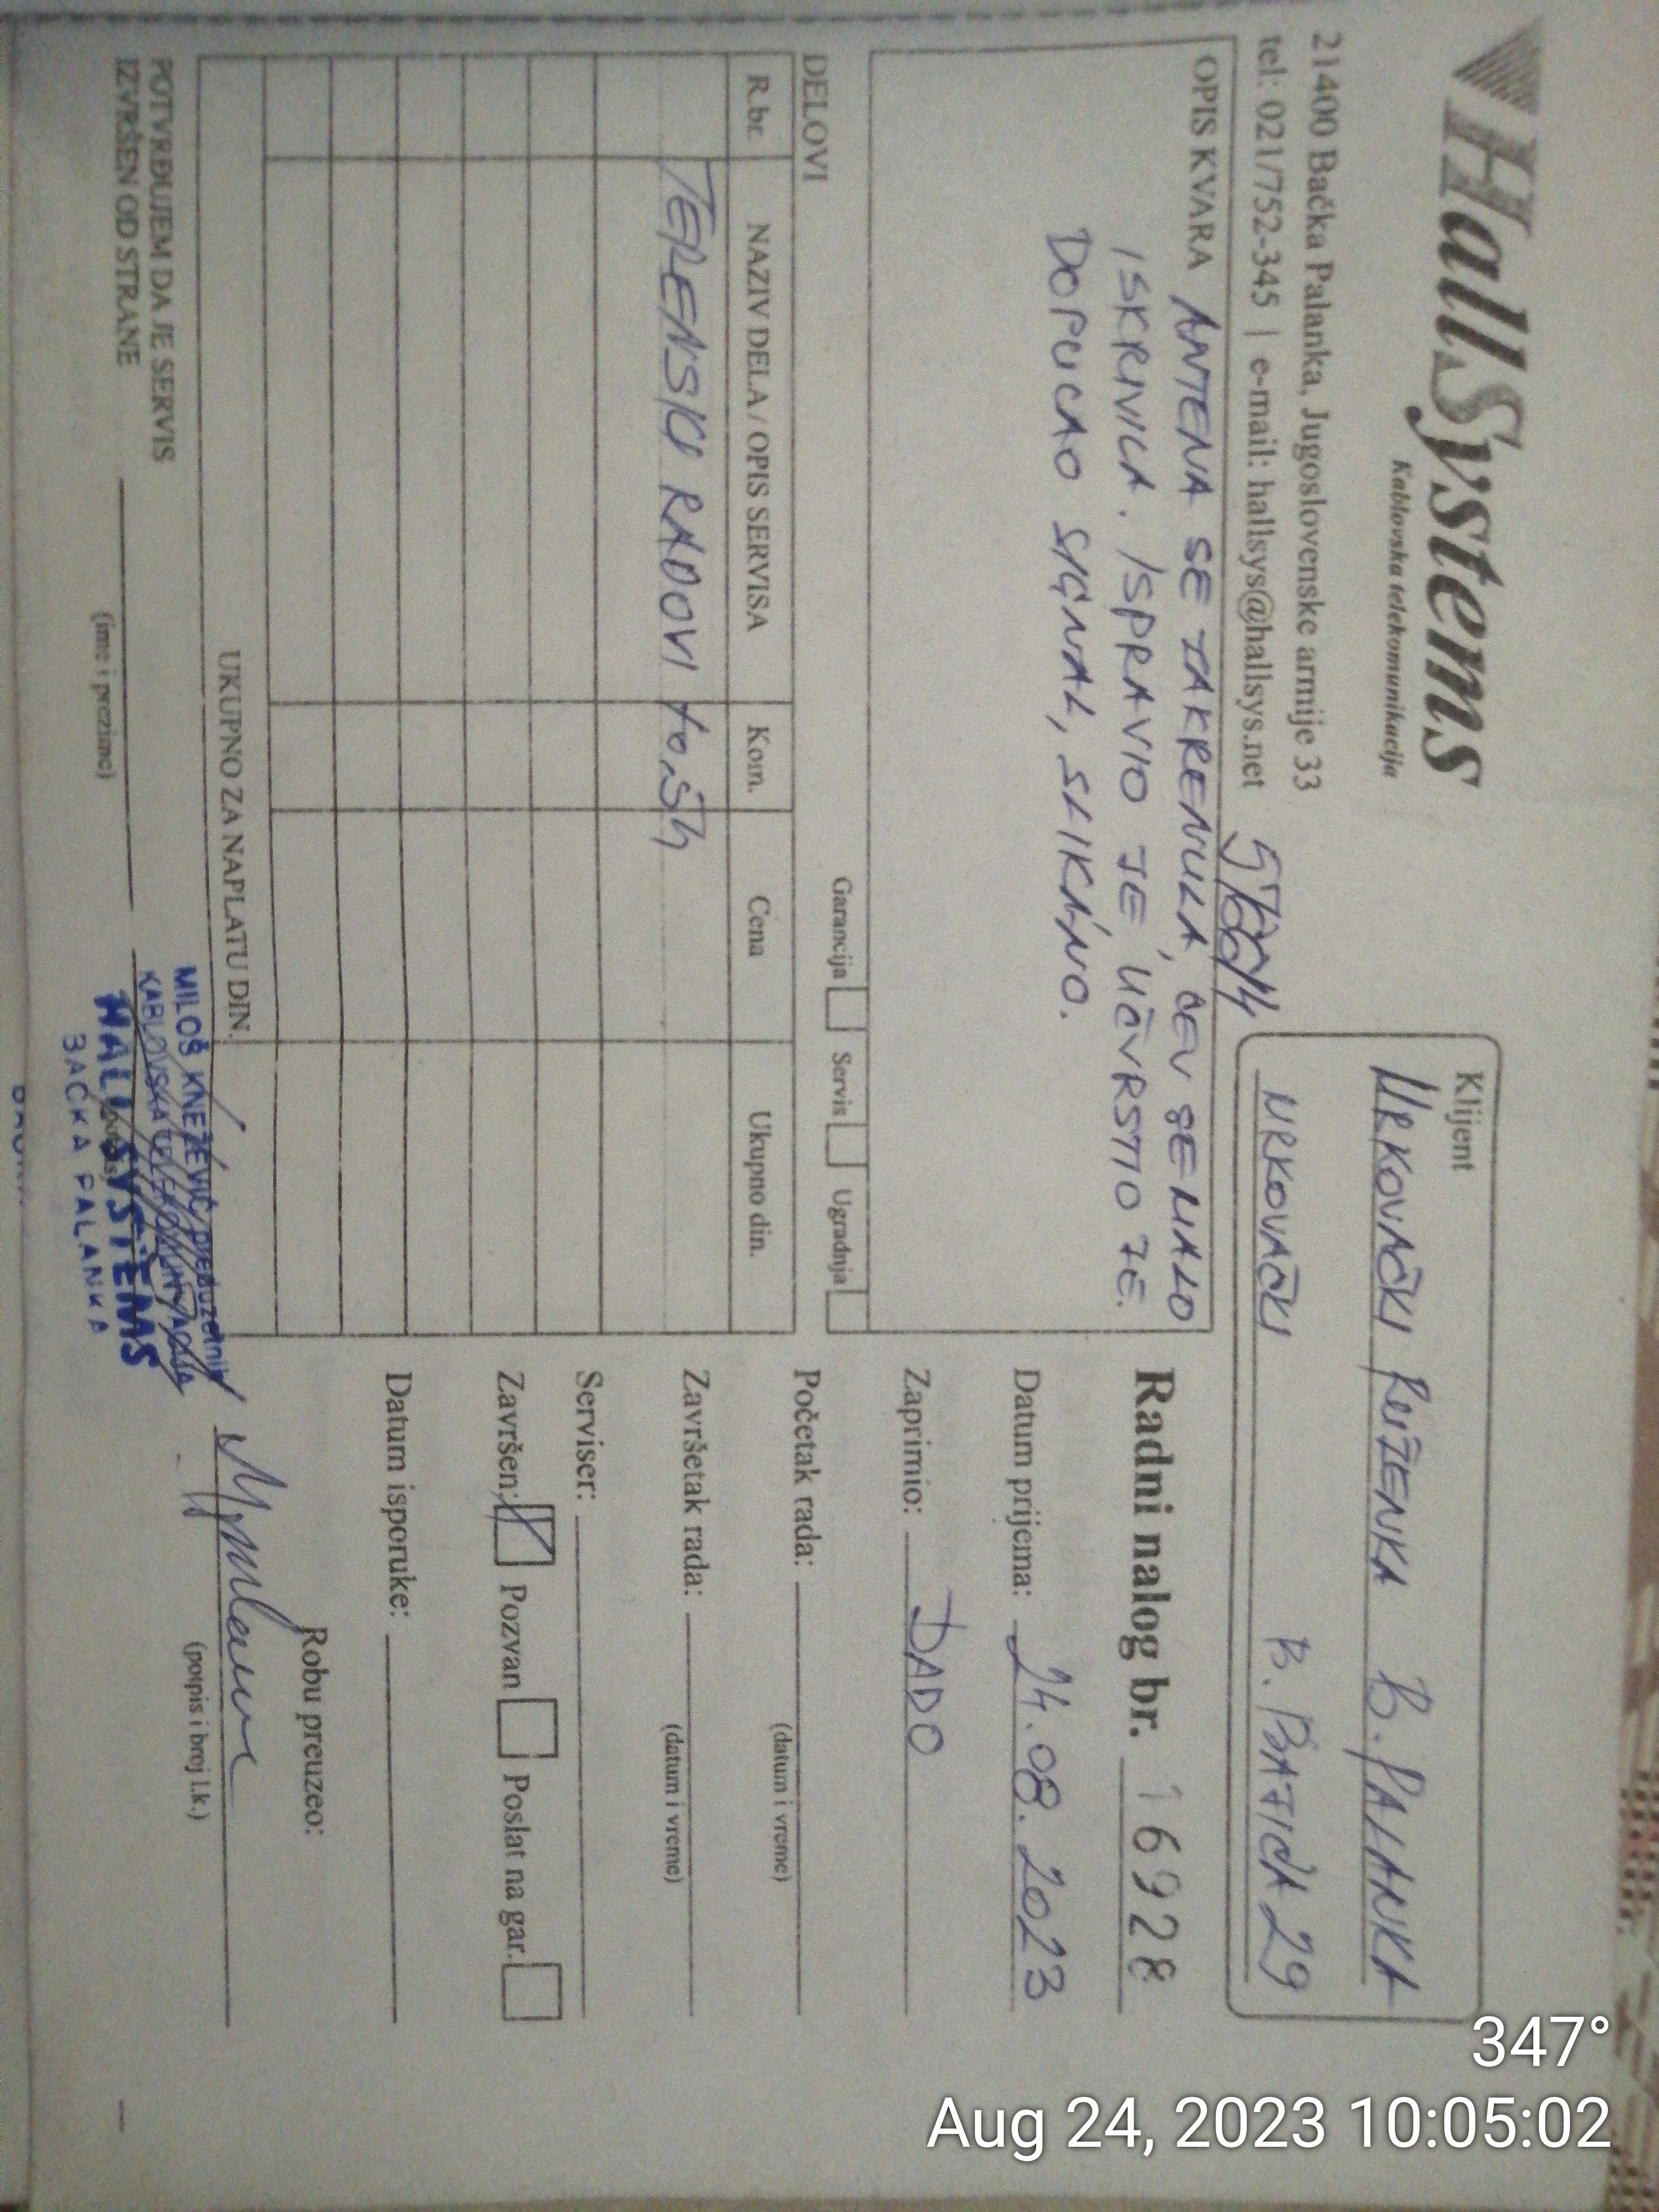 HallSystems
Kablovska telekomunikacija
21400 Bačka Palanka, Jugoslovenske armije 33
tel: 021/752-345 | e-mail: hallsys@hallsys.net
Klijent
URKOVAČKI RUŽENKA B. PALANKA
URKOVAČKI B. BATIĆA 29
OPIS KVARA ANTENA SE ZAKRENULA, CEV SE MALO
ISKRIVILA. ISPRAVIO JE, UČVRSTIO JE.
DOPUCAO SIGNAL, SLIKANO.
Garancija Servis Ugradnja
DELOVI
R.br. NAZIV DELA / OPIS SERVISA Kom. Cena Ukupno din.
TERENSKI RADOVI
UKUPNO ZA NAPLATU DIN.
POTVRĐUJEM DA JE SERVIS
IZVRŠEN OD STRANE
(ime i prezime)
MILOŠ KNEŽEVIĆ preduzetnik
KABLOVSKA TELEKOMUNIKACIJA
HALL SYSTEMS
BAČKA PALANKA
Radni nalog br. 16928
Datum prijema: 24.08.2023
Zaprimio: DADO
Početak rada:
(datum i vreme)
Završetak rada:
(datum i vreme)
Serviser:
Završen: Pozvan Poslat na gar.
Datum isporuke:
Robu preuzeo:
(potpis i broj l.k.)
347°
Aug 24, 2023 10:05:02